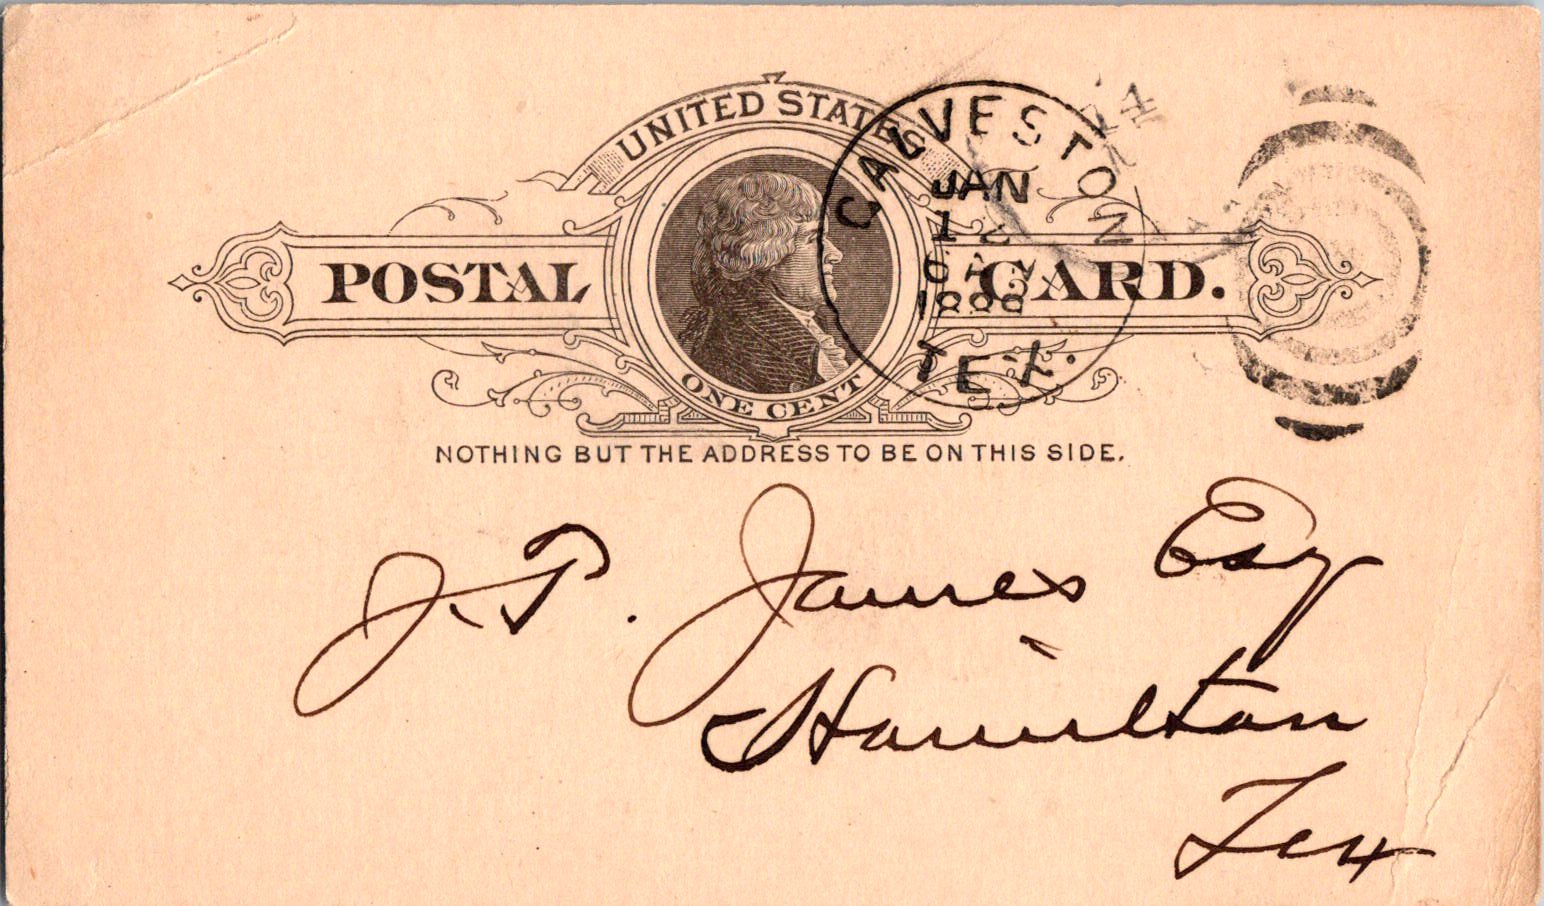 UNITED STATES
POSTAL CARD.
ONE CENT
GALVESTON
JAN
TEX.
NOTHING BUT THE ADDRESS TO BE ON THIS SIDE.
J. P. James Esq
Hamilton
Tex